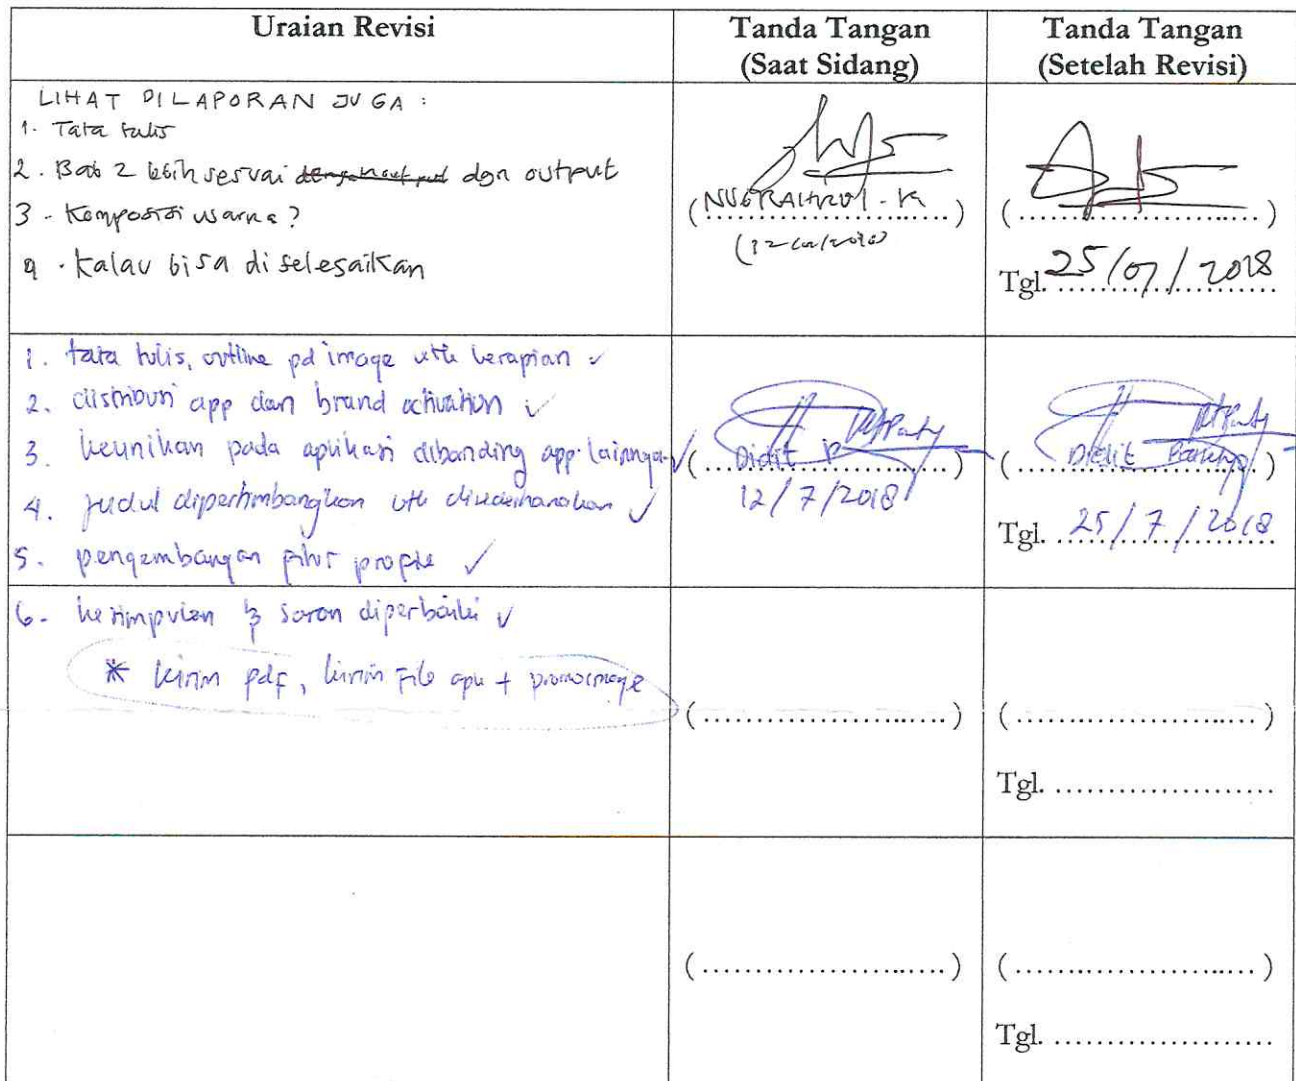 Uraian Revisi
Tanda Tangan
(Saat Sidang)
Tanda Tangan
(Setelah Revisi)
LIHAT DILAPORAN JUGA :
1. Tata tulis
2. Bab 2 lebih sesuai dgn output
3. Komposisi warna?
4. Kalau bisa diselesaikan
(NUGRAHADI. K)
Tgl. 25/07/2018
1. tata tulis, outline pd image utk kerapian ✓
2. distribusi app dan brand activation ✓
3. keunikan pada aplikasi dibanding app lainnya ✓
4. judul dipertimbangkan utk disederhanakan ✓
5. pengembangan fitur profile ✓
(Didit P)
12/7/2018
(Didit)
Tgl. 25/7/2018
6. kesimpulan & saran diperbaiki ✓
* kirim pdf, kirim file apk + promo image
(........................)
(........................)
Tgl. ......................
(........................)
(........................)
Tgl. ......................